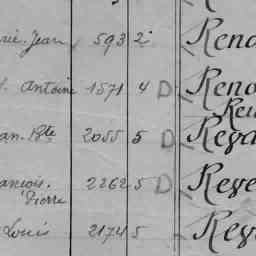 rie. Jean 593 2 Rena
Antoine 1571 4 D Reno
Reu
an. Bte 2055 5 D Rega
ançois. Pierre 2262 5 D Rege
Louis 2174 5 Reg